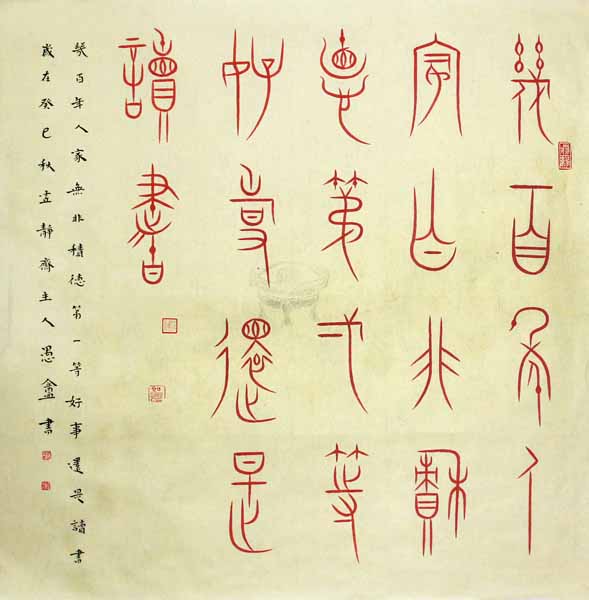 幾百年人
家無非積
德第一等
好事還是
讀書
幾百年人家無非積德第一等好事還是讀書
歲在癸巳秋孟靜齋主人愚盦書